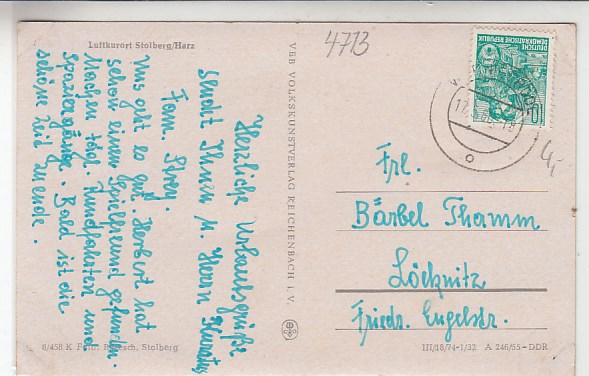 Luftkurort Stolberg/Harz
4713
Herzliche Urlaubsgrüße
sendt Ihnen u. Herrn
Fam.
Uns geht es gut. Herbert hat
schon einen Spielfreund gefunden.
Machen tägl. Rundfahrten und
Spaziergänge. Bald ist die
schöne Zeit zu ende.
VEB VOLKSKUNSTVERLAG REICHENBACH I. V.
DEUTSCHE
DEMOKRATISCHE REPUBLIK
10
Frl.
Bärbel Thamm
Löcknitz
Friedr. Engelstr.
8/458 K Foto: Stolberg
III/18/74-1/32 A 246/55-DDR